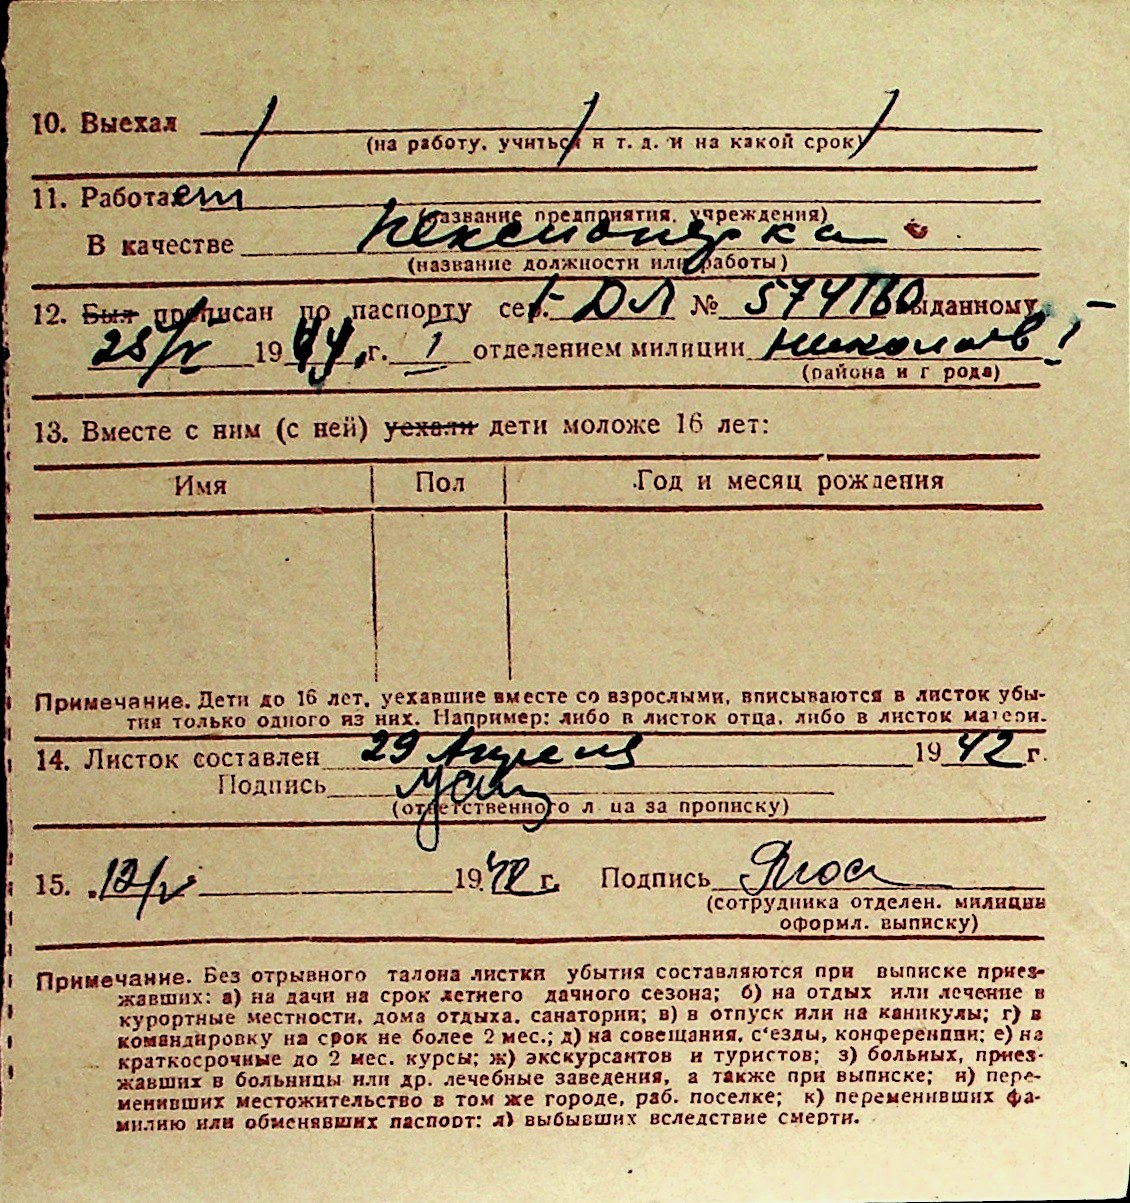 10. Выехал
(на работу, учиться и т. д. и на какой срок)
11. Работает
(название предприятия, учреждения)
В качестве пенсионерка
(название должности или работы)
12. Был прописан по паспорту сер. I-ДЛ № 574760 выданному
25/V 1944 г. 1 отделением милиции Николаев
(района и города)
13. Вместе с ним (с ней) уехали дети моложе 16 лет:
Имя Пол Год и месяц рождения
Примечание. Дети до 16 лет, уехавшие вместе со взрослыми, вписываются в листок убы-
тия только одного из них. Например: либо в листок отца, либо в листок матери.
14. Листок составлен 29 Апреля 1942 г.
Подпись
(ответственного лица за прописку)
15. 12/V 1942 г. Подпись
(сотрудника отделен. милиции
оформл. выписку)
Примечание. Без отрывного талона листки убытия составляются при выписке приез-
жавших: а) на дачи на срок летнего дачного сезона; б) на отдых или лечение в
курортные местности, дома отдыха, санатории; в) в отпуск или на каникулы; г) в
командировку на срок не более 2 мес.; д) на совещания, с'езды, конференции; е) на
краткосрочные до 2 мес. курсы; ж) экскурсантов и туристов; з) больных, приез-
жавших в больницы или др. лечебные заведения, а также при выписке; и) пере-
менивших местожительство в том же городе, раб. поселке; к) переменивших фа-
милию или обменявших паспорт; л) выбывших вследствие смерти.